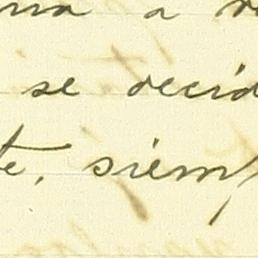 a
se decid
te, siemp